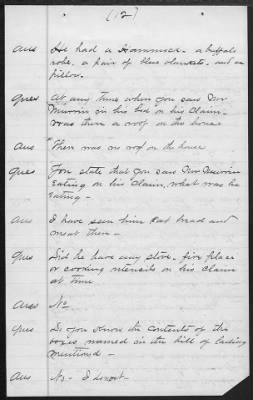 (12)
Ans He had a Hammock - a buffalo
robe, a pair of blue blankets - and a
pillow.
Ques At any time when you saw Mr
in his bed on his Claim -
was there a roof on the house
Ans There was no roof on the house
Ques You state that you saw Mr
Eating on his Claim, what was he
Eating -
Ans I have seen him Eat bread and
meat there -
Ques Did he have any stove - fire place
or cooking utensils on his claim
at time
Ans No
Ques Do you Know the contents of the
boxes named in the bill of lading
mentioned -
Ans No - I do not -